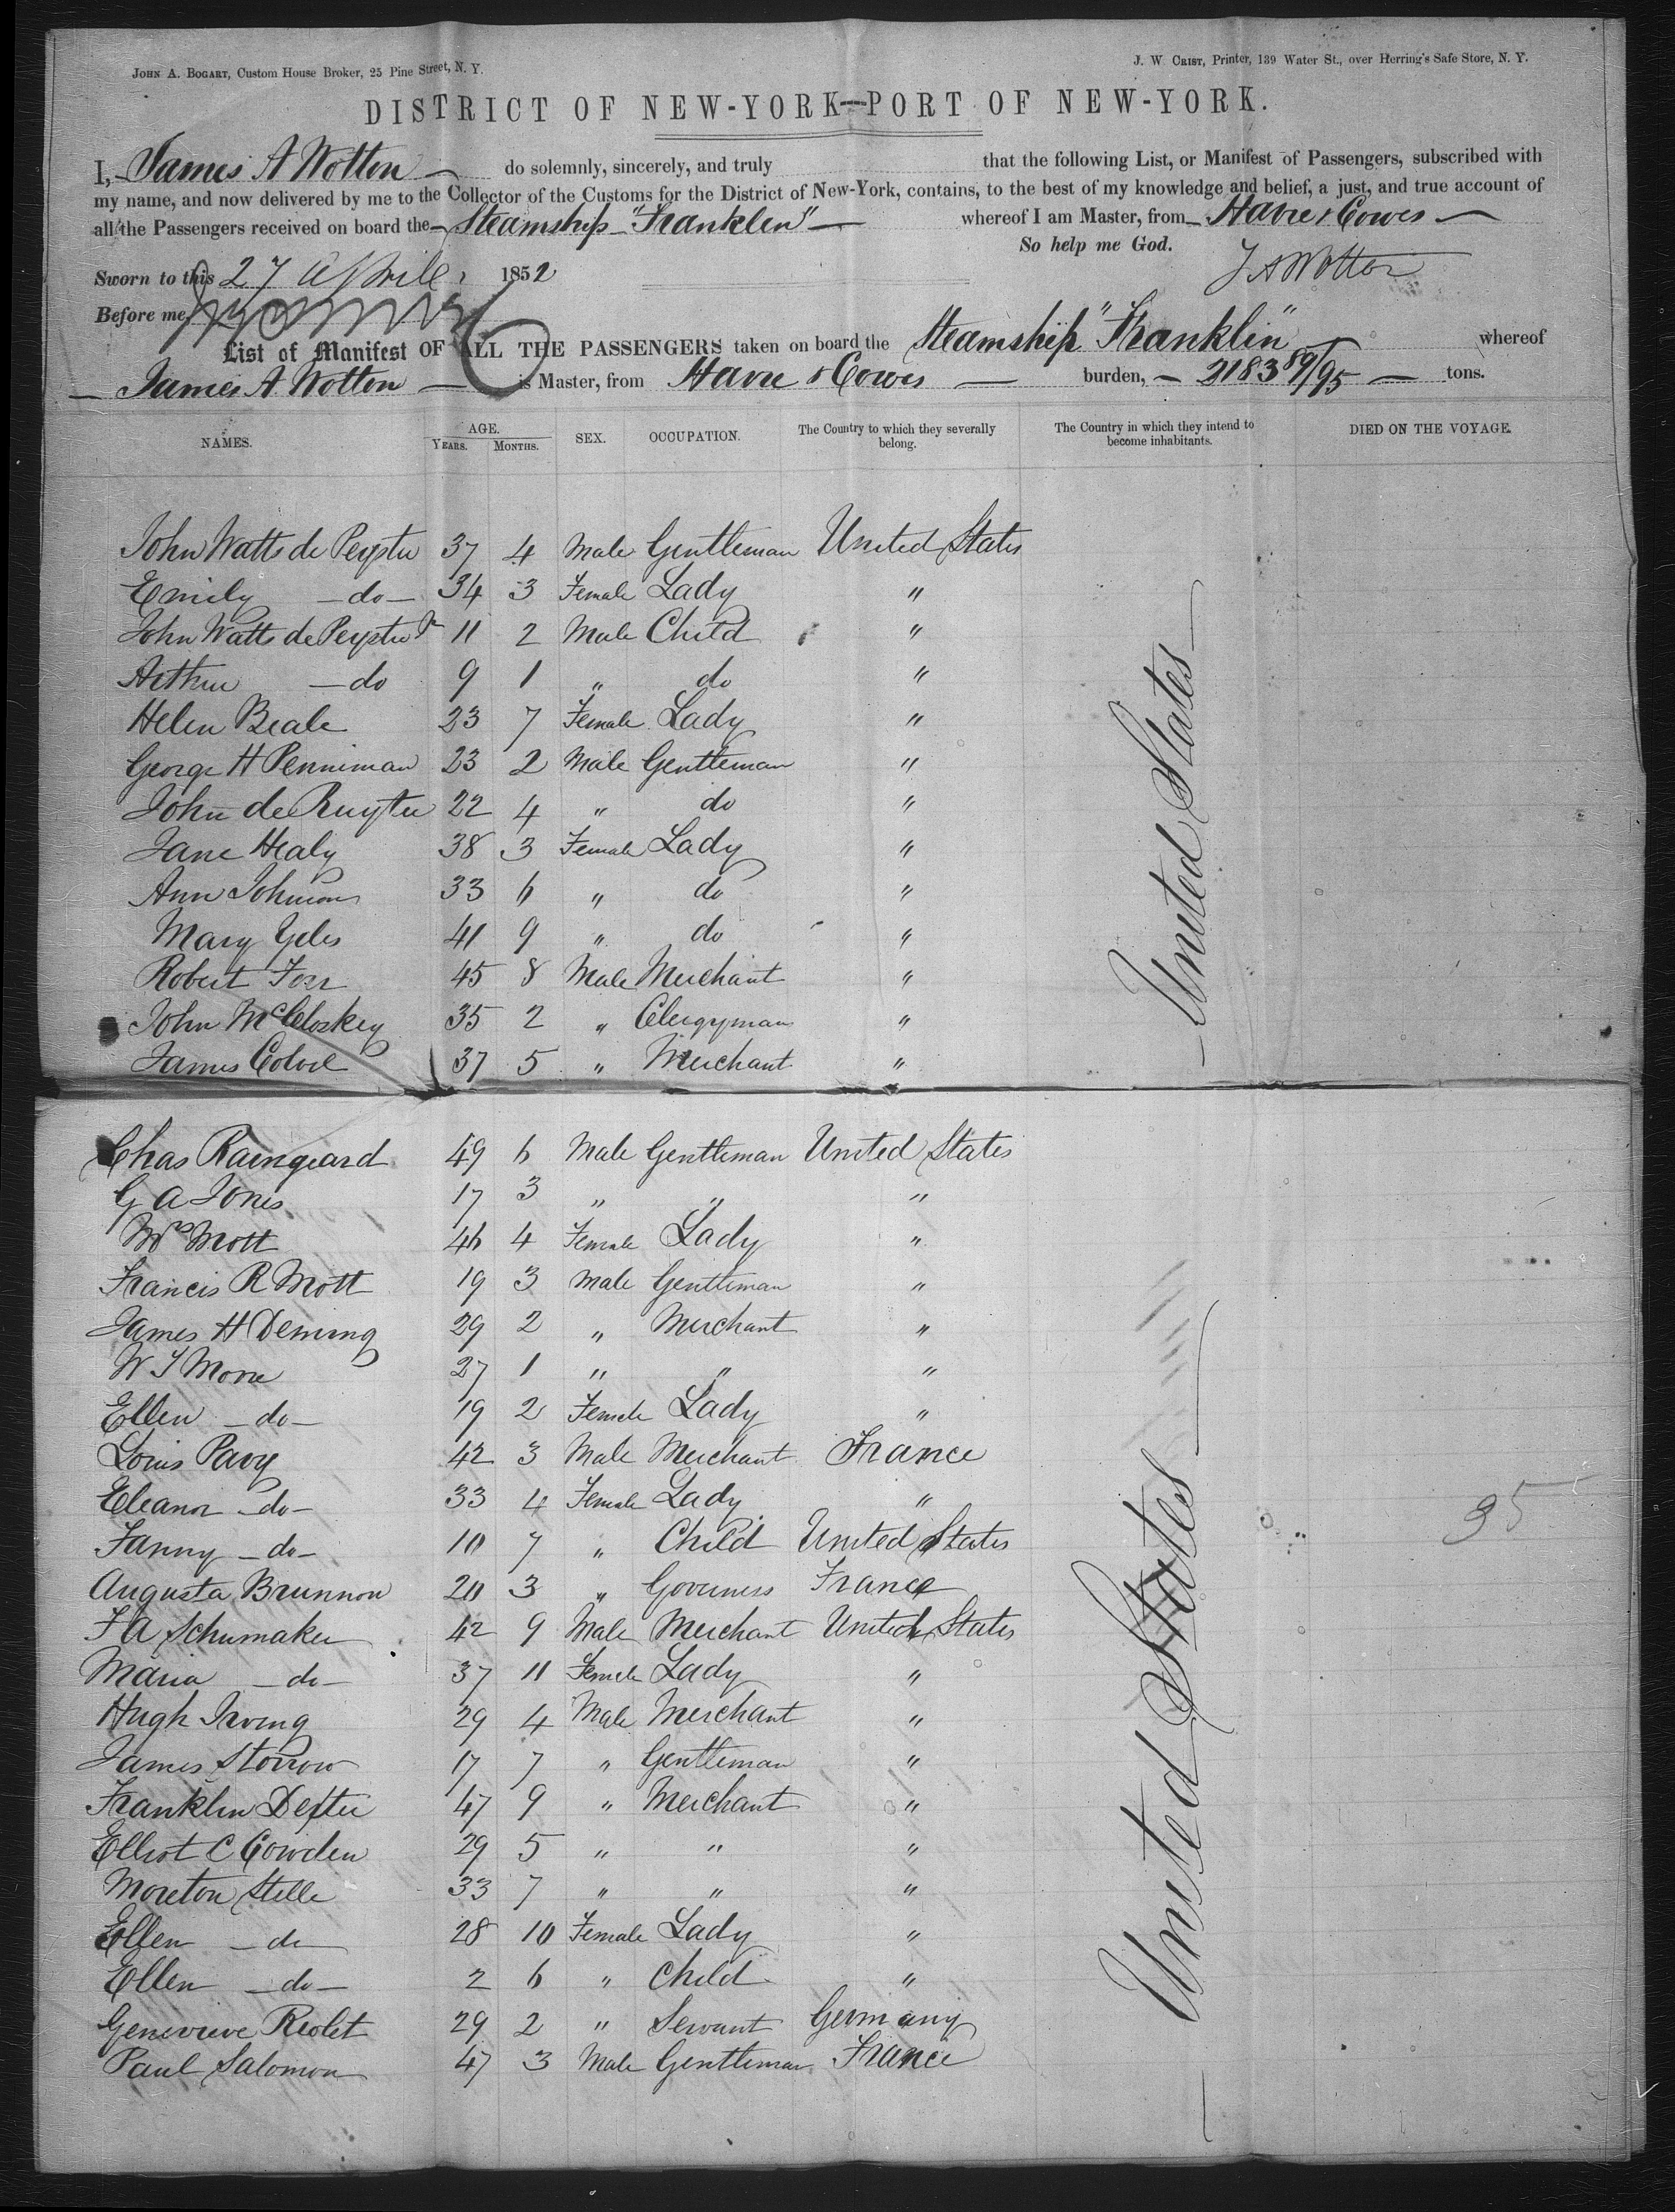 JOHN A. BOGART, Custom House Broker, 25 Pine Street, N. Y.
J. W. CRIST, Printer, 139 Water St., over Herring's Safe Store, N. Y.
DISTRICT OF NEW-YORK—PORT OF NEW-YORK.
I, James A Wotton do solemnly, sincerely, and truly that the following List, or Manifest of Passengers, subscribed with
my name, and now delivered by me to the Collector of the Customs for the District of New-York, contains, to the best of my knowledge and belief, a just, and true account of
all the Passengers received on board the Steamship "Franklin" whereof I am Master, from Havre & Cowes
So help me God.
Sworn to this 27 April 1852 J A Wotton
Before me,
List of Manifest OF ALL THE PASSENGERS taken on board the Steamship "Franklin" whereof
James A. Wotton is Master, from Havre & Cowes burden, 2183 89/95 tons.
NAMES. AGE. YEARS. MONTHS. SEX. OCCUPATION. The Country to which they severally belong. The Country in which they intend to become inhabitants. DIED ON THE VOYAGE.
John Watts de Peyster 37 4 Male Gentleman United States
Emily —do— 34 3 Female Lady "
John Watts de Peyster Jr 11 2 Male Child "
Arthur —do 9 1 " do "
Helen Beale 23 7 Female Lady "
George H Penniman 23 2 Male Gentleman "
John de Ruyter 22 4 " do "
Jane Healy 38 3 Female Lady "
Ann Johnson 33 6 " do "
Mary Giles 41 9 " do "
Robert 45 8 Male Merchant "
John McCloskey 35 2 " Clergyman "
James Colvil 37 5 " Merchant "
United States
Chas Raingeard 49 6 Male Gentleman United States
G A Jones 17 3 " " "
Mrs Mott 46 4 Female Lady "
Francis R Mott 19 3 Male Gentleman "
James H Deming 29 2 " Merchant "
W 27 1 " " "
Ellen —do— 19 2 Female Lady "
Louis Pavy 42 3 Male Merchant France
Eleanor —do— 33 4 Female Lady "
Fanny —do— 10 7 " Child United States
Augusta Brunnow 20 3 " Governess France
F A Schumaker 42 9 Male Merchant United States
Maria —do— 37 11 Female Lady "
Hugh Irving 29 4 Male Merchant "
James Storrow 17 7 " Gentleman "
Franklin Dexter 47 9 " Merchant "
Elliot C Cowden 29 5 " " "
Moreton Stille 33 7 " " "
Ellen —do— 28 10 Female Lady "
Ellen —do— 2 6 " Child "
Genevieve Riolet 29 2 " Servant Germany
Paul Salomon 47 3 Male Gentleman France
United States
35